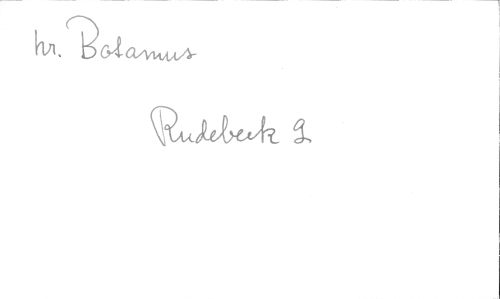 hr. Botamus
Rudebeck G